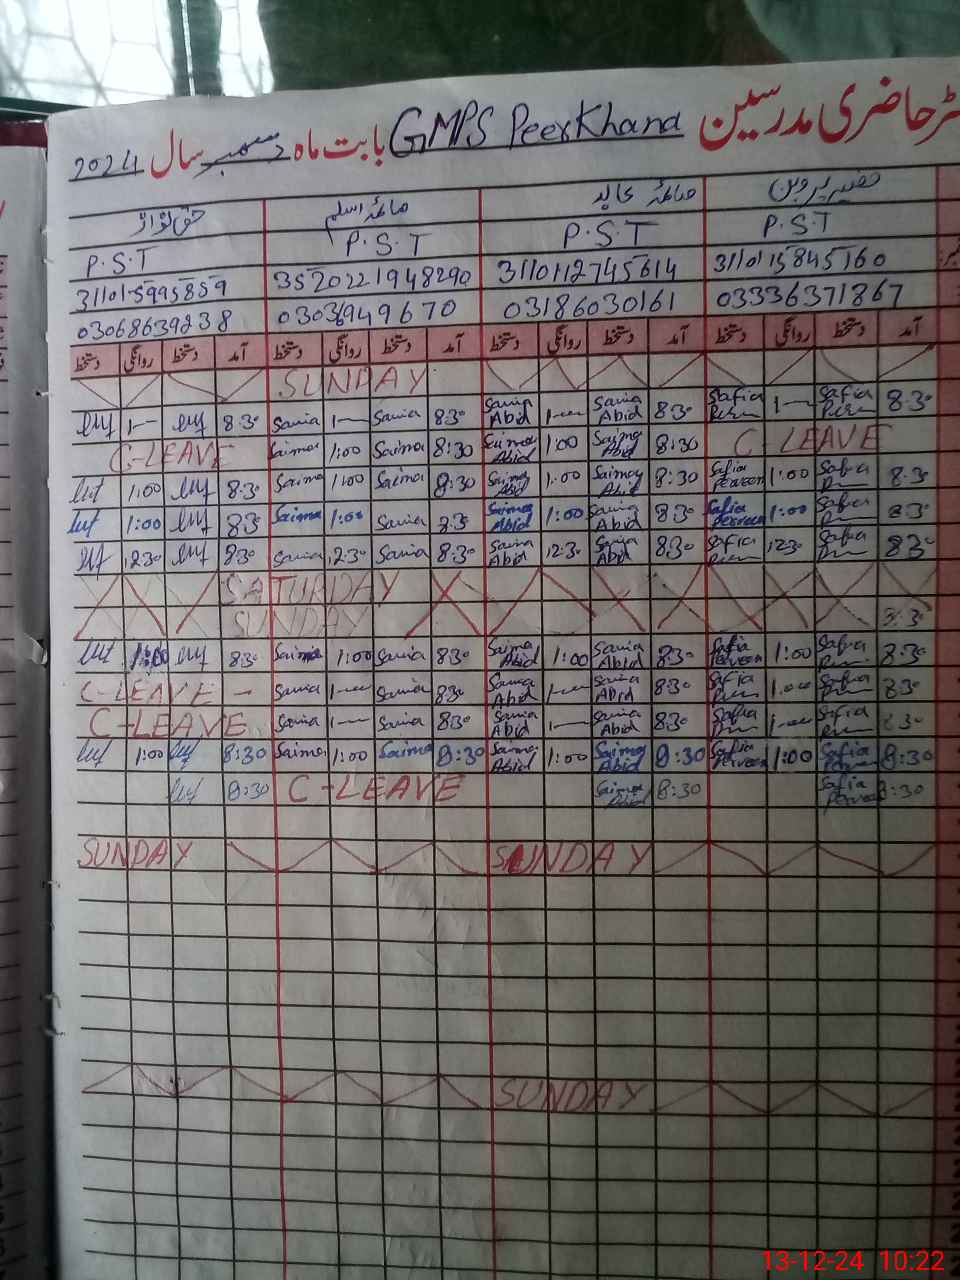 رجسٹر حاضری مدرسین GMPS PeerKhana بابت ماہ دسمبر سال 2024
صفیہ پروین صائمہ عابد صائمہ اسلم حق نواز
P.S.T P.S.T P.S.T P.S.T
31101-5995859 3520221948290 3110112745614 3110115845160
03068639238 03036949670 03186030161 03336371867
آمد دستخط روانگی دستخط آمد دستخط روانگی دستخط آمد دستخط روانگی دستخط آمد دستخط روانگی دستخط
SUNDAY
1— 8.30 Saima 1— Saima 8.30 Saima Abid 1— Saima Abid 8.30 Safia 1— Safia 8.30
C-LEAVE Saima 1:00 Saima 8:30 Saima Abid 1:00 Saima Abid 8:30 C-LEAVE
1:00 8.30 Saima 1:00 Saima 8:30 Saima Abid 1:00 Saima Abid 8:30 Safia Perveen 1:00 Safia 8.30
1:00 8.30 Saima 1:00 Saima 8.30 Saima Abid 1:00 Saima Abid 8.30 Safia Perveen 1:00 Safia 8.30
12:30 8.30 Saima 12.30 Saima 8.30 Saima Abid 12.30 Saima Abid 8.30 Safia 12.30 Safia 8.30
SATURDAY
SUNDAY 8.30
1:00 8.30 Saima 1:00 Saima 8.30 Saima Abid 1:00 Saima Abid 8.30 Safia Perveen 1:00 Safia 8.30
C-LEAVE - Saima 1— Saima 8.30 Saima Abid 1— Saima Abid 8.30 Safia 1.00 Safia 8.30
C-LEAVE Saima 1— Saima 8.30 Saima Abid 1— Saima Abid 8.30 Safia 1— Safia 8.30
1:00 8:30 Saima 1:00 Saima 8:30 Saima Abid 1:00 Saima Abid 8:30 Safia Perveen 1:00 Safia 8:30
8:30 C-LEAVE Saima Abid 8:30 Safia Perveen 8:30
SUNDAY SUNDAY
SUNDAY
13-12-24 10:22